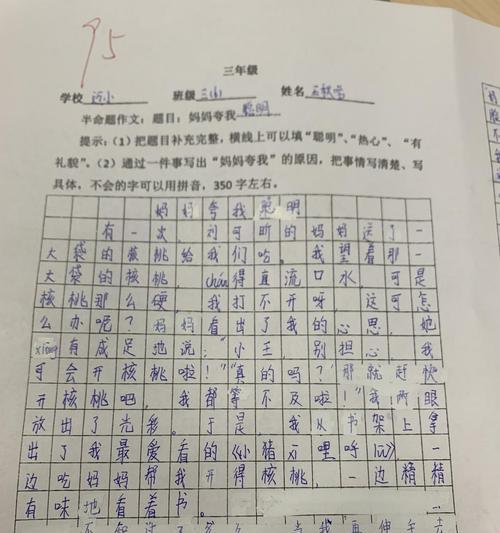 95
三年级
学校 沂小 班级 三(4) 姓名
半命题作文：题目：妈妈夸我 聪明
提示：（1）把题目补充完整，横线上可以填“聪明”、“热心”、“有
礼貌”。（2）通过一件事写出“妈妈夸我”的原因，把事情写清楚、写
具体，不会的字可以用拼音，350字左右。
妈妈夸我聪明
有一次，刘可昕的妈妈送了一
大袋的核桃给我们吃。我望着那一
大袋的核桃，chán得直流口水，可是
核桃那么硬，我打不开呀，这可怎
么办呢？妈妈看出了我的心思，她
xiōng有成足地说：“小王，别担心，我
可会开核桃啦！”“真的吗？那就赶快
开核桃吧，我都等不及啦！”我两眼
放出了光彩。于是，我从书架上拿
出了我最爱看的《小猪xī哩呼lū》一
边吃妈妈帮我开得核桃，一边精精
有味地看着书。